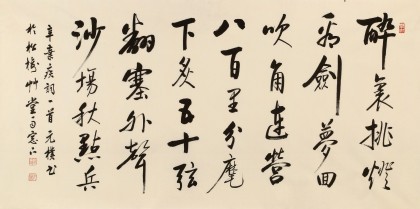 醉裏挑燈
看劍夢回
吹角連營
八百里分麾
下炙五十弦
翻塞外聲
沙場秋點兵
辛棄疾詞一首元樸書
於松艸堂